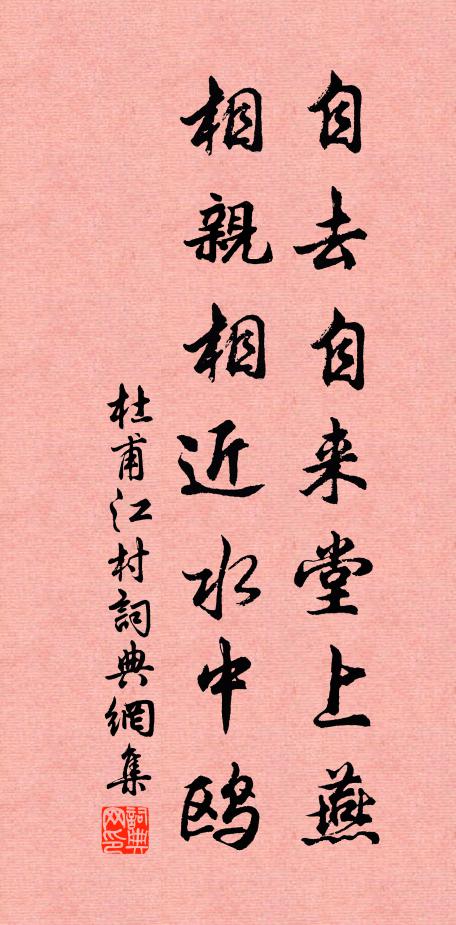 自去自来堂上燕
相親相近水中鸥
杜甫江村詞典網集
詞典网印